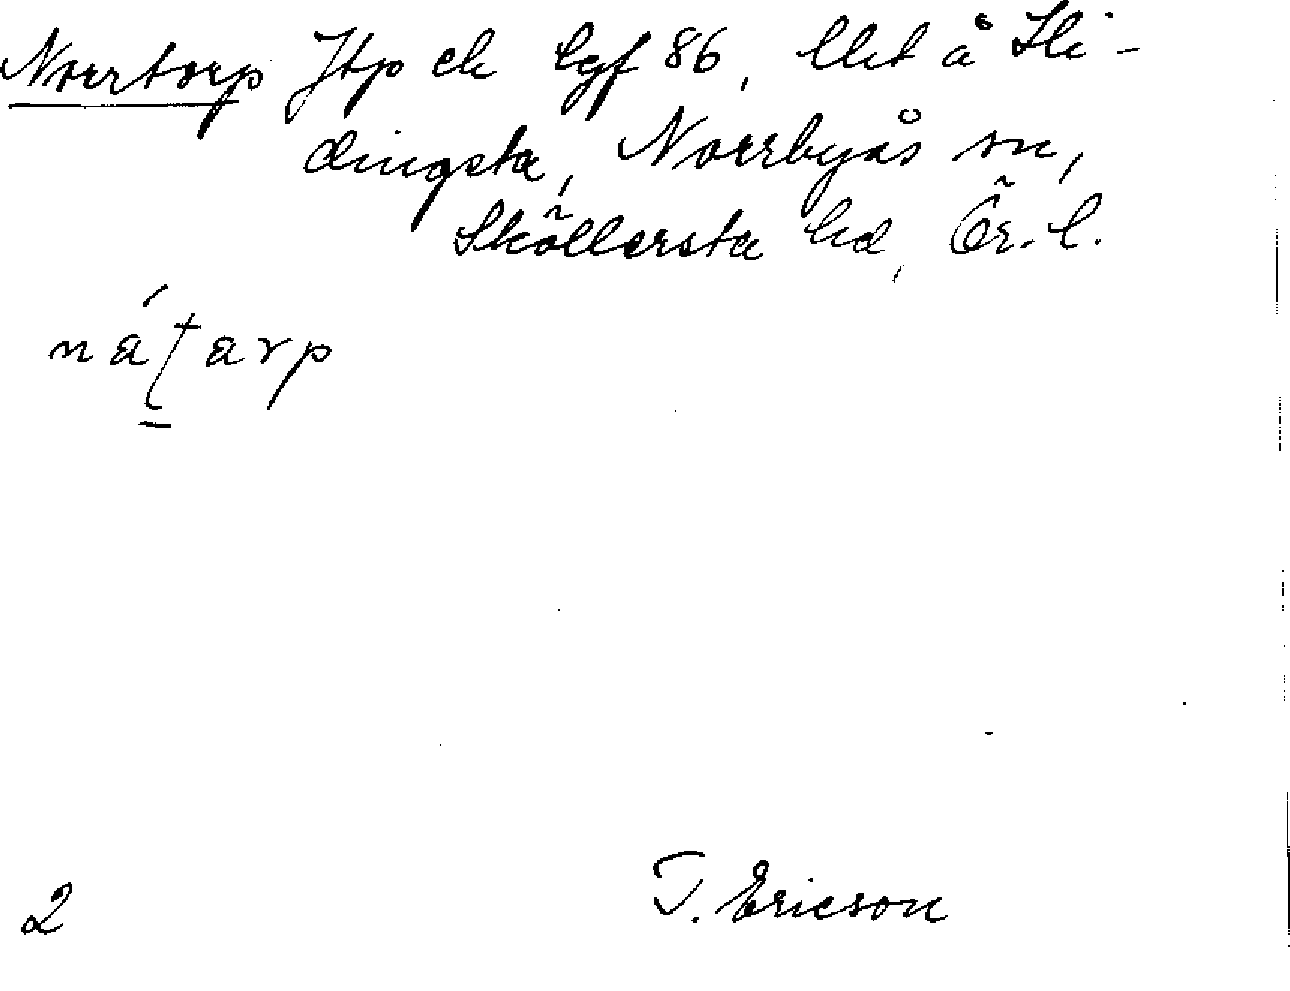 Norrtorp Jtp ek Egf 86, Uht å Hi-
dingsta, Norrbyås sn,
Sköllersta hd, Ör. l.
nátarp
2 T. Ericson